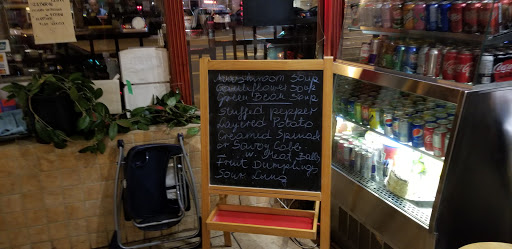 Mushroom Soup
Cauliflower Soup
Green Bean Soup
Stuffed Pepper
Layered Potato
Creamed Spinach
or Savoy Cabb
w. Meat Balls
Fruit Dumplings
Sour Lung